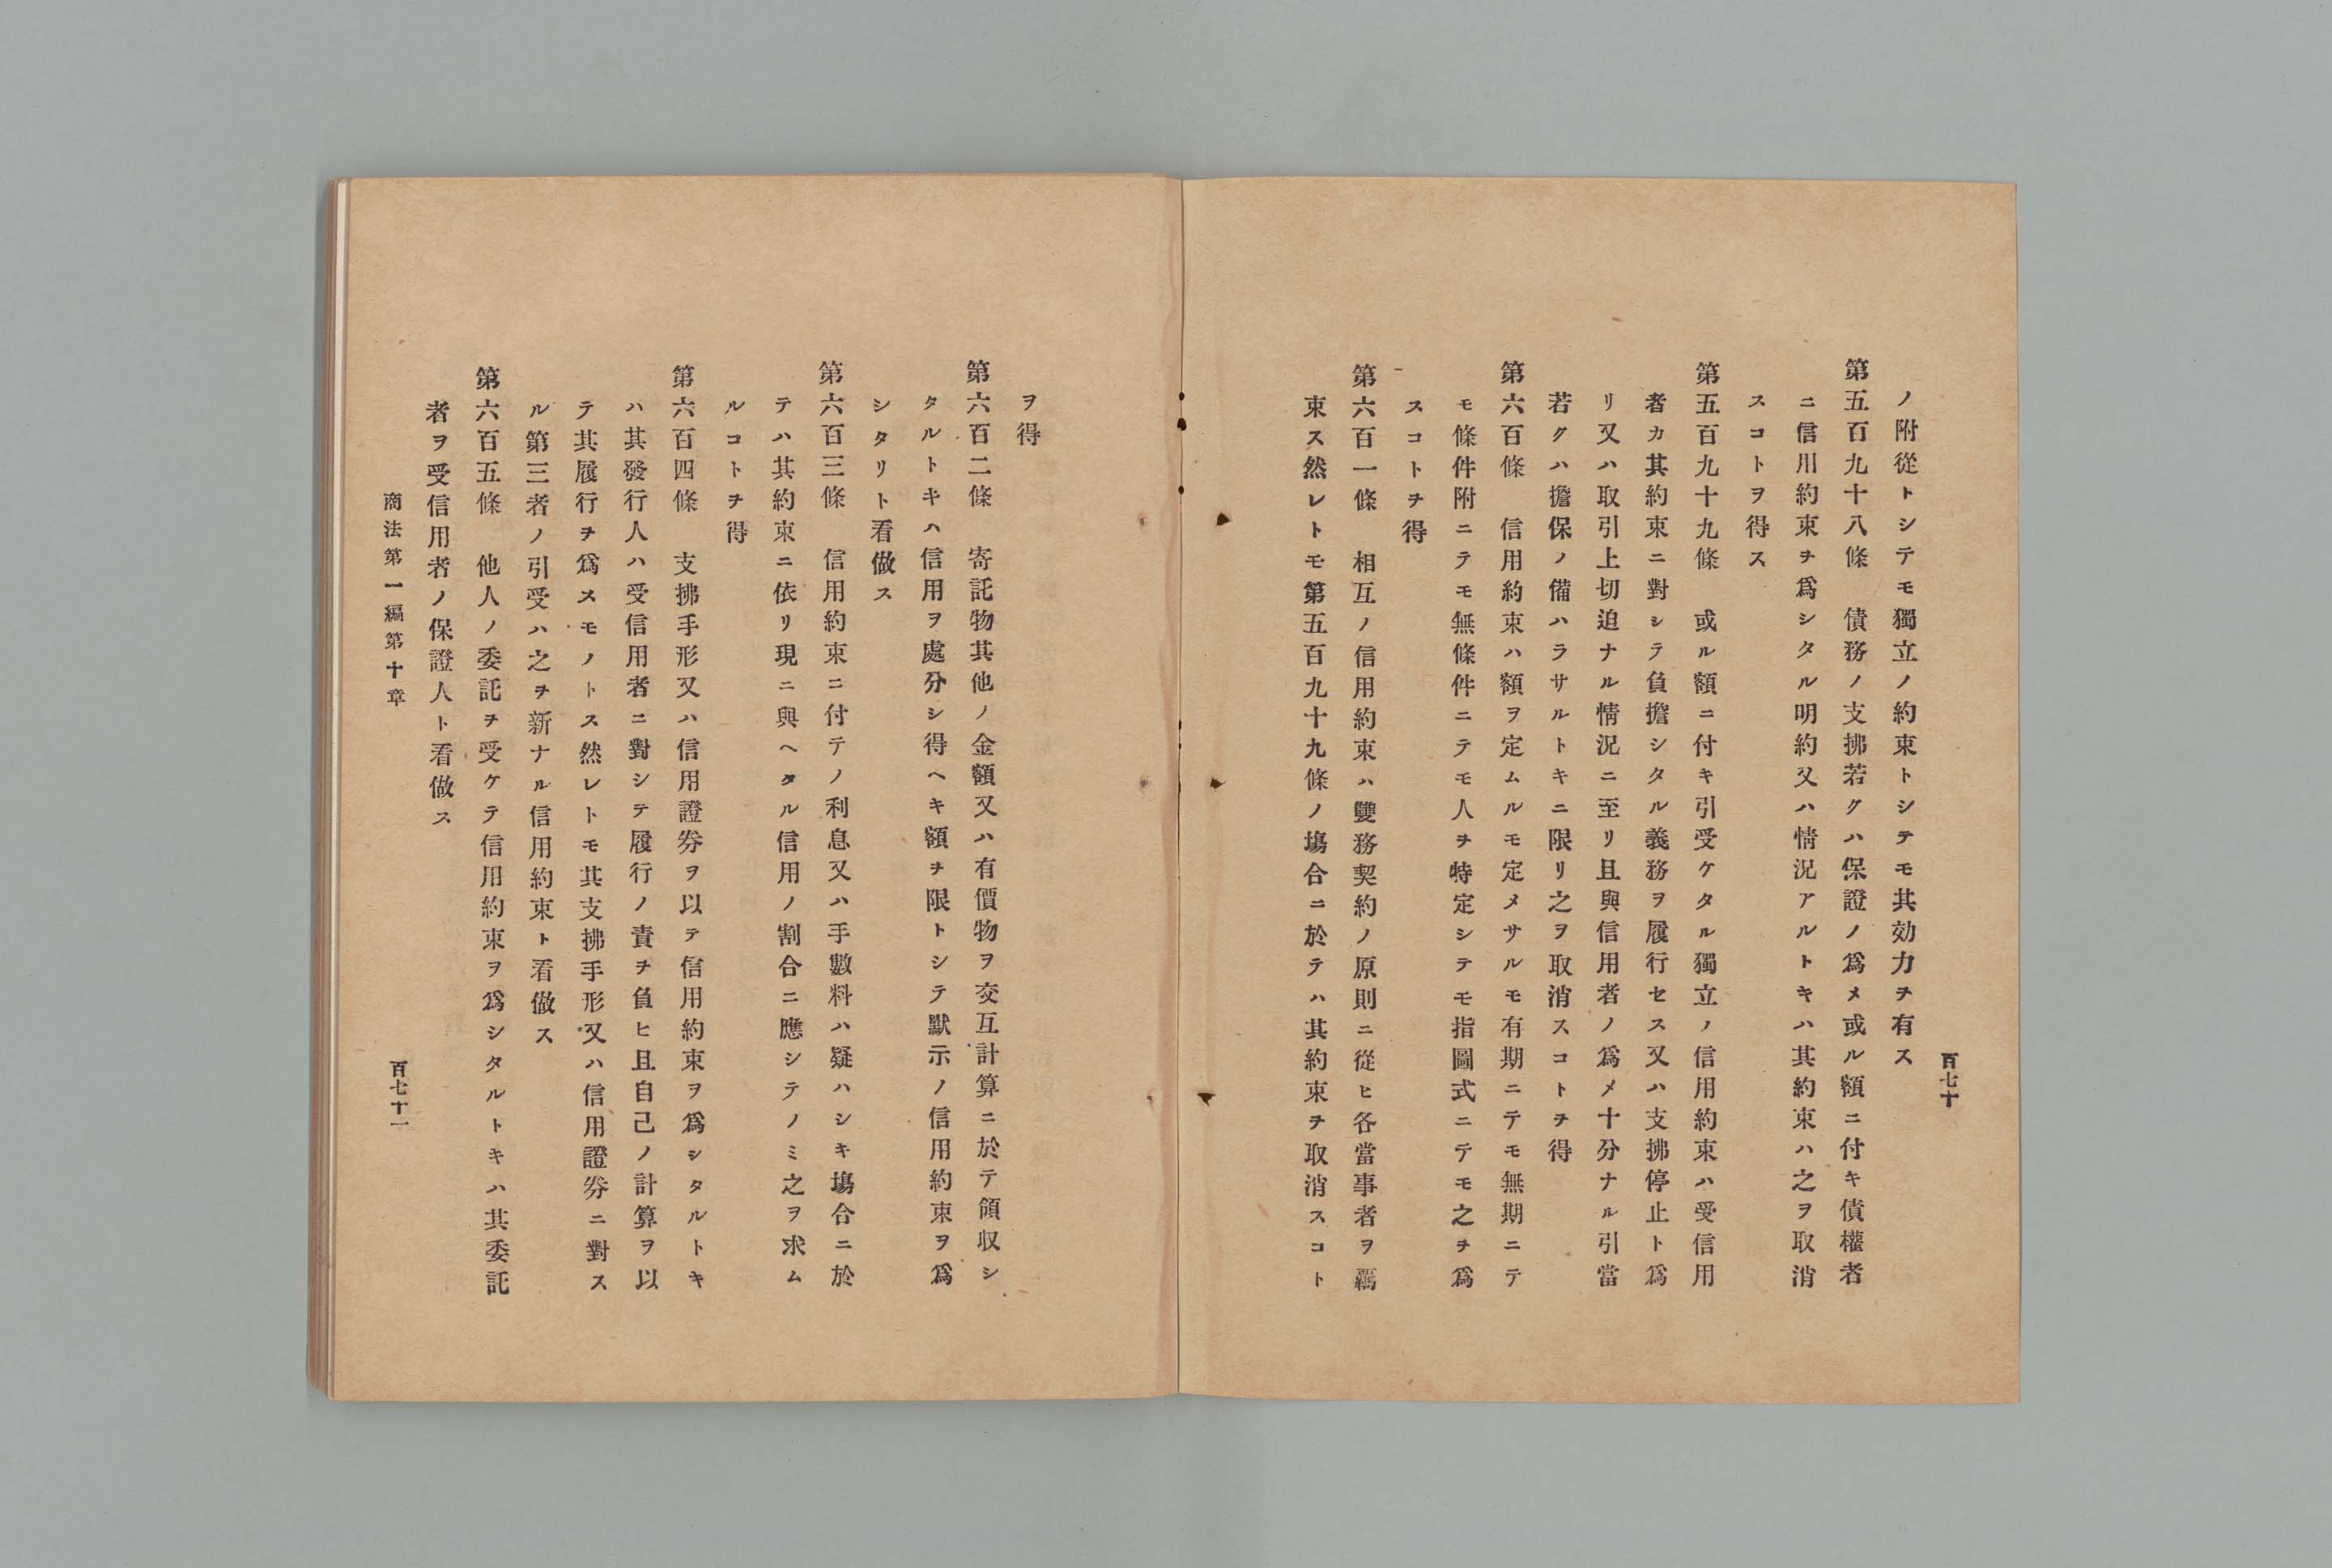 百七十
ノ附從トシテモ獨立ノ約束トシテモ其効力ヲ有ス
第五百九十八條　債務ノ支拂若クハ保證ノ爲メ或ル額ニ付キ債權者
ニ信用約束ヲ爲シタル明約又ハ情況アルトキハ其約束ハ之ヲ取消
スコトヲ得ス
第五百九十九條　或ル額ニ付キ引受ケタル獨立ノ信用約束ハ受信用
者カ其約束ニ對シテ負擔シタル義務ヲ履行セス又ハ支拂停止ト爲
リ又ハ取引上切迫ナル情況ニ至リ且與信用者ノ爲メ十分ナル引當
若クハ擔保ノ備ハラサルトキニ限リ之ヲ取消スコトヲ得
第六百條　信用約束ハ額ヲ定ムルモ定メサルモ有期ニテモ無期ニテ
モ條件附ニテモ無條件ニテモ人ヲ特定シテモ指圖式ニテモ之ヲ爲
スコトヲ得
第六百一條　相互ノ信用約束ハ雙務契約ノ原則ニ從ヒ各當事者ヲ羈
束ス然レトモ第五百九十九條ノ塲合ニ於テハ其約束ヲ取消スコト
ヲ得
第六百二條　寄託物其他ノ金額又ハ有價物ヲ交互計算ニ於テ領収シ
タルトキハ信用ヲ處分シ得ヘキ額ヲ限トシテ默示ノ信用約束ヲ爲
シタリト看做ス
第六百三條　信用約束ニ付テノ利息又ハ手數料ハ疑ハシキ塲合ニ於
テハ其約束ニ依リ現ニ與ヘタル信用ノ割合ニ應シテノミ之ヲ求ム
ルコトヲ得
第六百四條　支拂手形又ハ信用證券ヲ以テ信用約束ヲ爲シタルトキ
ハ其發行人ハ受信用者ニ對シテ履行ノ責ヲ負ヒ且自己ノ計算ヲ以
テ其履行ヲ爲スモノトス然レトモ其支拂手形又ハ信用證券ニ對ス
ル第三者ノ引受ハ之ヲ新ナル信用約束ト看做ス
第六百五條　他人ノ委託ヲ受ケテ信用約束ヲ爲シタルトキハ其委託
者ヲ受信用者ノ保證人ト看做ス
商法第一編第十章
百七十一